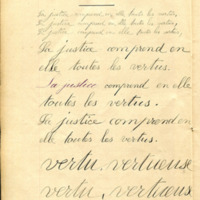 La justice comprend en elle toutes les vertus.
La justice comprend en elle toutes les vertus.
La justice comprend en elle toutes les vertus.
La justice comprend en
elle toutes les vertus.
La justice comprend en elle
toutes les vertus.
La justice comprend en
elle toutes les vertus.
vertu, vertueuse
vertu, vertueuse